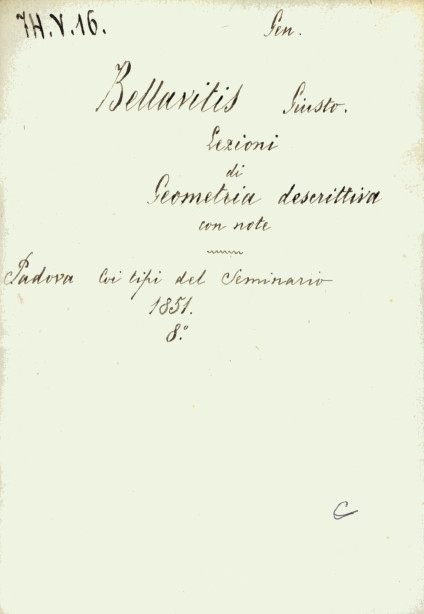 7H.V.16. Gen.
Bellavitis Giusto.
Lezioni
di
Geometria descrittiva
con note
Padova Coi tipi del Seminario
1851.
8.°
C